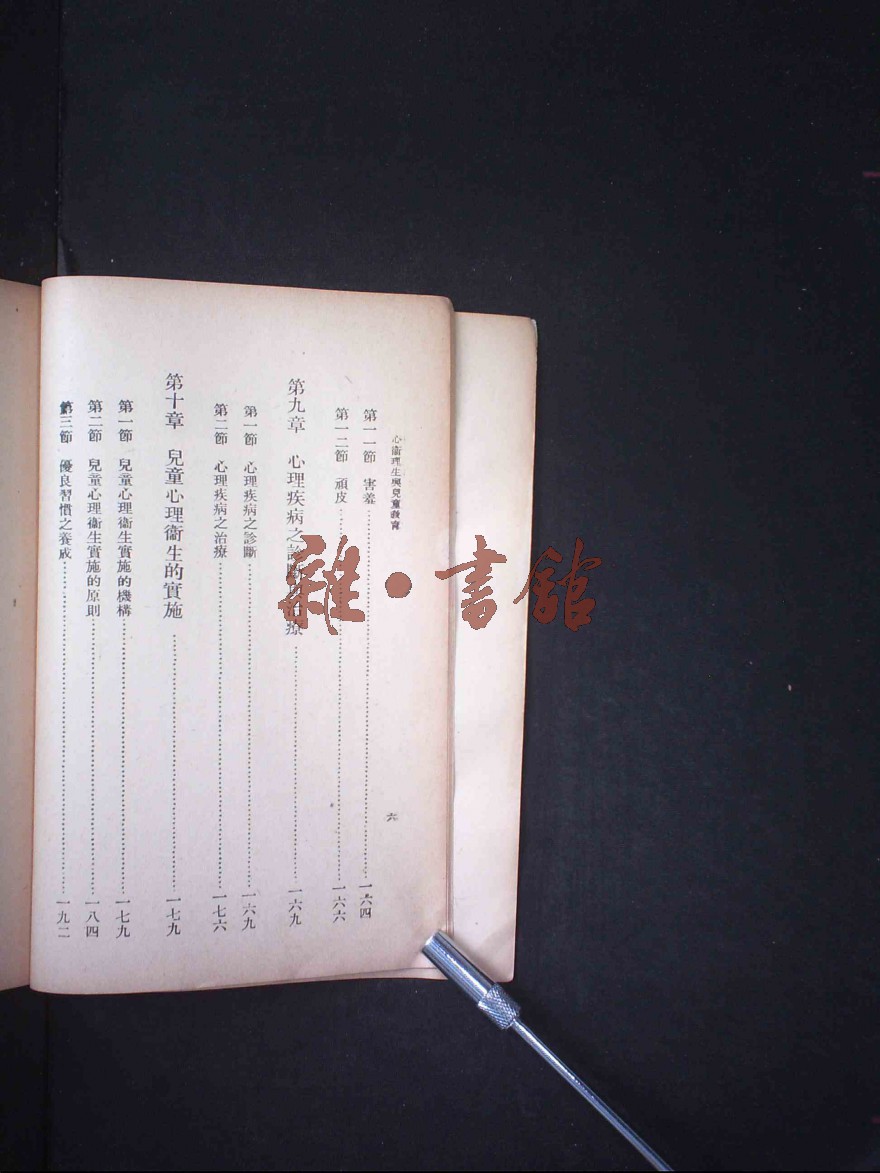 心衞理生與兒童教育
六
第一一節　害羞…………一六四
第一二節　頑皮…………一六六
第九章　心理疾病之診斷與治療…………一六九
第一節　心理疾病之診斷…………一六九
第二節　心理疾病之治療…………一七六
第十章　兒童心理衞生的實施…………一七九
第一節　兒童心理衞生實施的機構…………一七九
第二節　兒童心理衞生實施的原則…………一八四
第三節　優良習慣之養成…………一九二
雜·書館